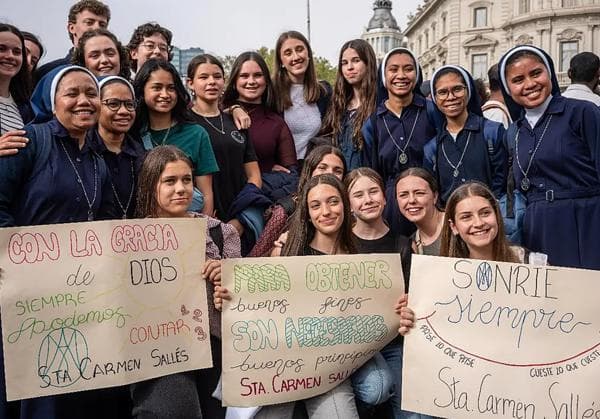 CON LA GRACIA
de DIOS
SIEMPRE
PODEMOS
CONTAR
1 2 3
STA CARMEN SALLÉS
PARA OBTENER
buenos fines
SON NECESARIOS
buenos principios
STA. CARMEN SALLÉS
SONRIE
siempre
PASE LO QUE PASE
CUESTE LO QUE CUESTE
Sta. Carmen Sallés